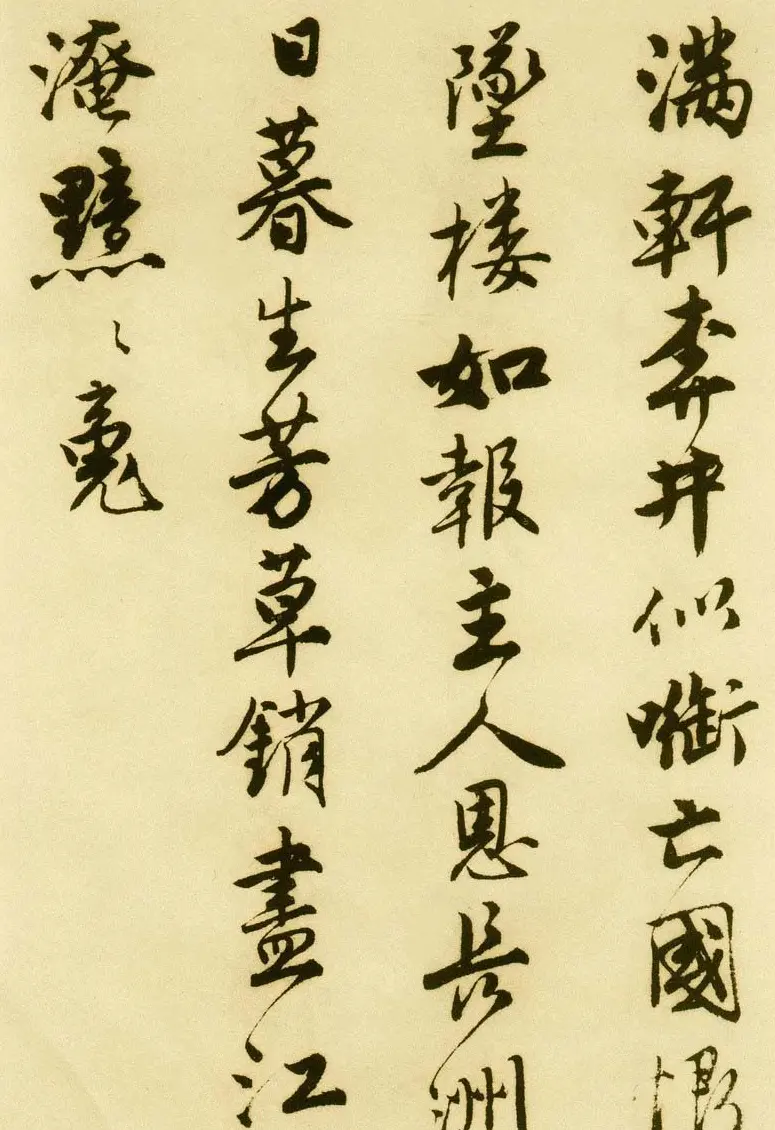 滿軒奔井似啣亡國恨
墜楼如報主人恩長洲
日暮生芳草銷盡江
淹黯々魂